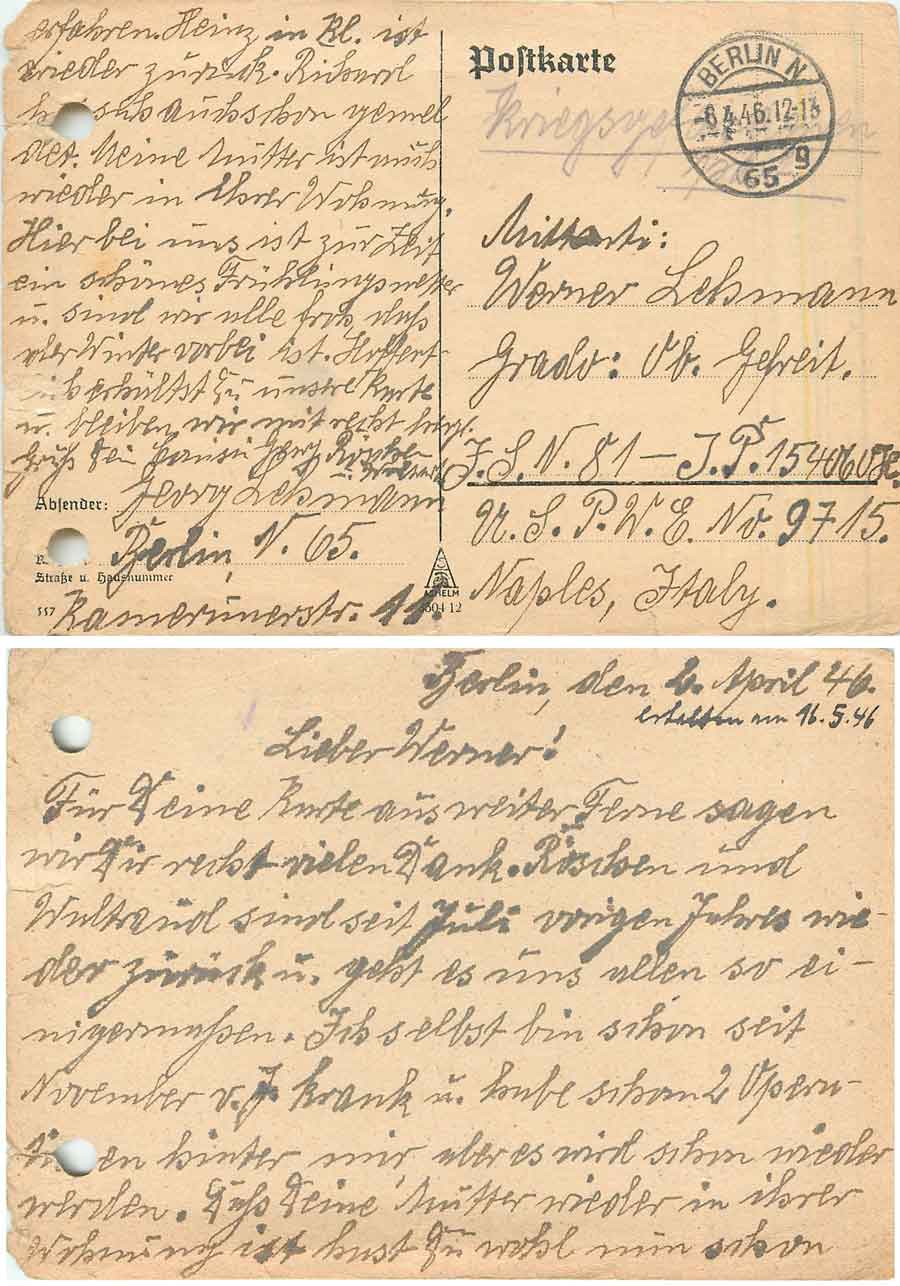 erfahren. Heinz in Kl. ist
wieder zurück. Richard
hat sich auch schon gemel
det. Meine Mutter ist auch
wieder in Ihrer Wohnung.
Hier bei uns ist zur Zeit
ein schönes Frühlingswetter
u. sind wir alle froh daß
der Winter vorbei ist. Hoffent-
lich erhältst Du unsere Karte
u. bleiben wir mit recht herzl.
Gruß Dein Georg, Röschen
u. Waltraud
Absender: Georg Lehmann
Berlin, N. 65.
Straße u. Hausnummer
Kamerunerstr. 11.
557
Postkarte
BERLIN N
-6.4.46.12-13
65 g
Kriegsgef
Werner Lehmann
Grado: Ob. Gefreit.
I.S.N. 81 – J.P. 154060
U.S.P.W.E. No. 9715.
Naples, Italy.
Berlin, den 2. April 46.
erhalten am 16.5.46
Lieber Werner!
Für Deine Karte aus weiter Ferne sagen
wir Dir recht vielen Dank. Röschen und
Waltraud sind seit Juli vorigen Jahres wie-
der zurück u. geht es uns allen so ei-
nigermaßen. Ich selbst bin schon seit
November v.J. krank u. habe schon 2 Opera-
tionen hinter mir aber es wird schon wieder
werden. Daß Deine Mutter wieder in ihrer
Wohnung ist hast Du wohl nun schon